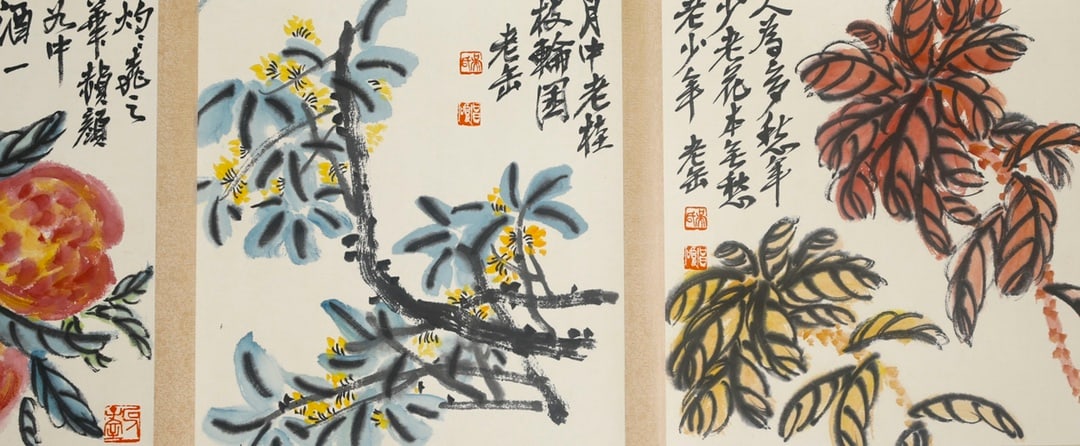 人為多愁年
少老花本無愁
老少年 老缶
月中老桂
枝輪囷
老缶
灼〻桃之
華赬顏
如中
酒一